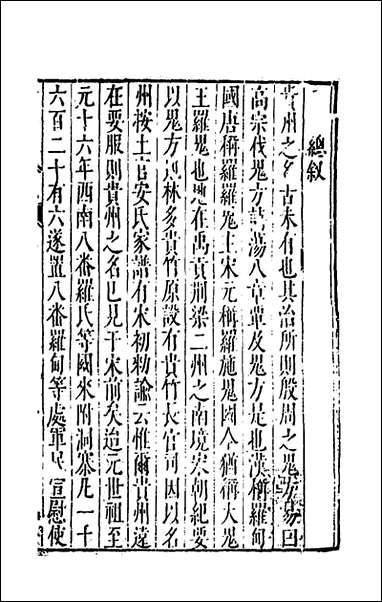 總叙
貴州之名古未有也其治所則殷周之鬼方易曰
高宗伐鬼方詩蕩八章覃及鬼方是也漢稱羅甸
國唐稱羅羅鬼主宋元稱羅施鬼國今猶稱大鬼
主羅鬼也地在禹貢荊梁二州之南境宋朝紀要
以鬼方 林多貴竹原設有貴竹長官司因以名
州按土官安氏家譜有宋初勑諭云惟爾貴州遠
在要服則貴州之名已見于宋前矣迨元世祖至
元十六年西南八番羅氏等國來附洞寨凡一千
六百二十有六遂置八番羅甸等處軍民宣慰使